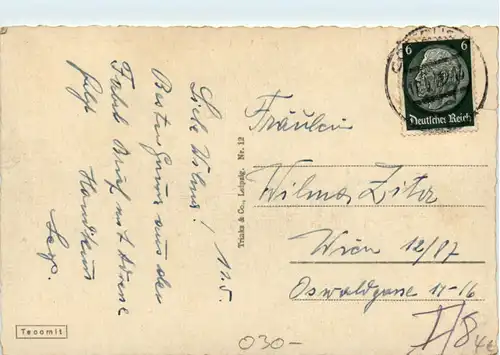 11.5.
Liebe Wilma!
Besten Gruss aus der
Brief mit Adresse
folgt
Handkuss
Sep.
Trinks & Co., Leipzig. Nr. 12
Tecomit
6 6
Deutsches Reich
Fräulein
Wilma Zitz
Wien 12/87
Oswaldgasse 11-16
I/8
030-
4€